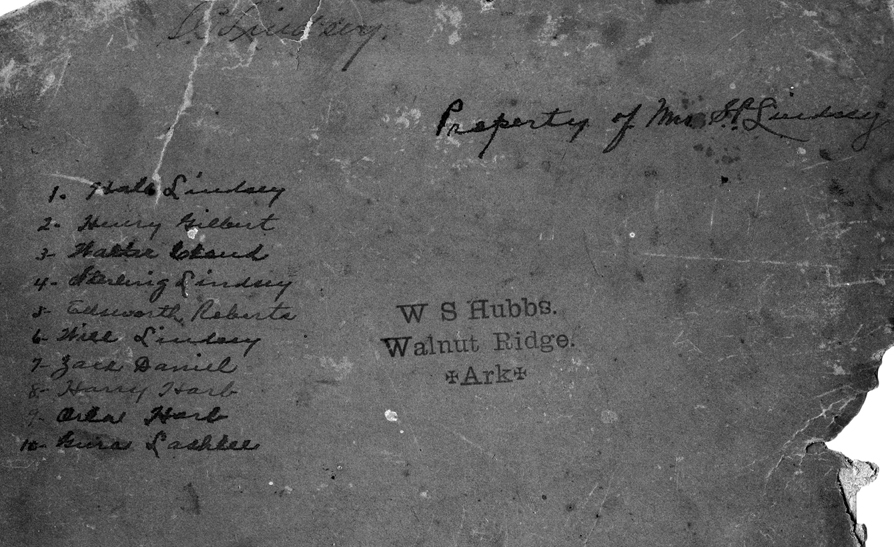 Lindsey.
Property of Mrs S.P. Lindsey
1. Hale Lindsey
2- Henry Gilbert
3- Walter
4- Sterling Lindsey
5- Edsworth Roberts
6- Will Lindsey
7- Zack Daniel
8- Harry Harb
9- Orla Harb
10- Lashlee
W S Hubbs.
Walnut Ridge.
✠Ark✠